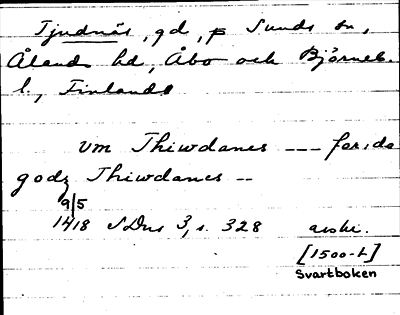 Tjudnäs, gd, på Sunds sn,
Ålands hd, Åbo och Björneb.
l., Finland
vm Thiwdanes --- for:da
godz Thiwdanes --
9/5
1418 SDns 3, s. 328 avskr.
[1500-t]
Svartboken